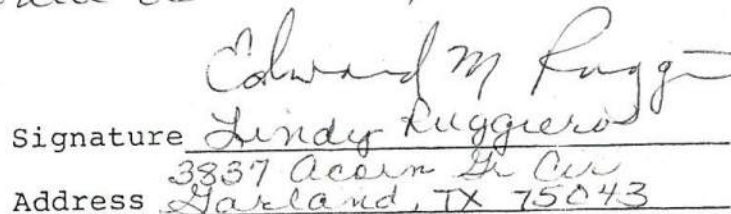 Edward M Ruggi
Signature Lindy Ruggiero
3837 Acorn Gr Cir
Address Garland, TX 75043